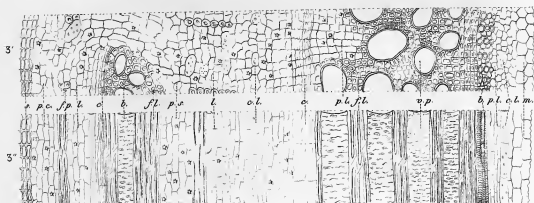 3'
s. p.c. f.p. l. c b. f.l. p.s. l. c.l. c. p.l. f.l. v.p. b. p.l. c.l. m.
3"